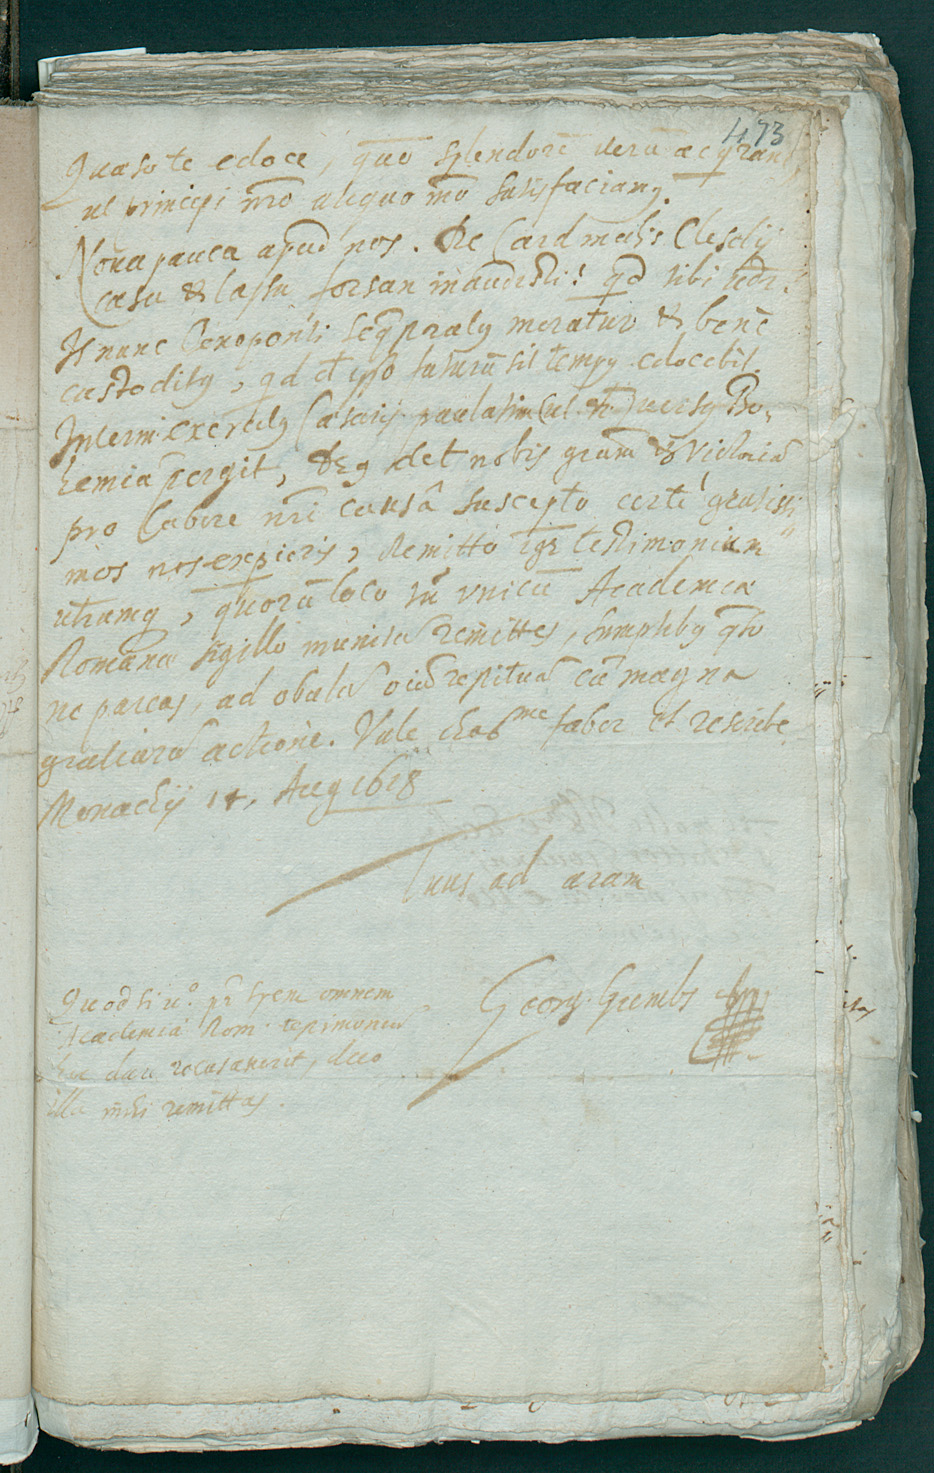 473
Quaso te edoce, quo splendorē verū acqrant
ut principi nrō aliquo mō satisfaciamꝰ.
Noua pauca apud nos. De Cardinalis Cleselij
casu & lapsu forsan inaudisti! qd tibi
Is nunc Oenoponti seqpralꝰ moratur & bene
custoditꝰ, qd de ipso futurū sit tempꝰ edocebit.
Interim exercitꝰ Casarij paulatim versꝰ Bo-
hemiā pergit, Deꝰ det nobis gram & Victoriā
pro labore nrī causâ suscepto certè gratissi-
mos nos experieris, Remitto igr testimonium
utrumq, quorū loco tū vnicū Academiæ
Romanæ sigillo munitū remittes, sumptibꝰ qso
ne parcas, ad obolū oiā repituā cū magna
gratiarū actione. Vale chaˢᵐᵉ faber et rescribe
Monachij 14. Aug 1618
Tuus ad aram
Georg Gumbs
Quod si v° pr̄ spem omnem
Academia Rom. testimoniū
hoc dare recusauerit,
illa mihi remittas.